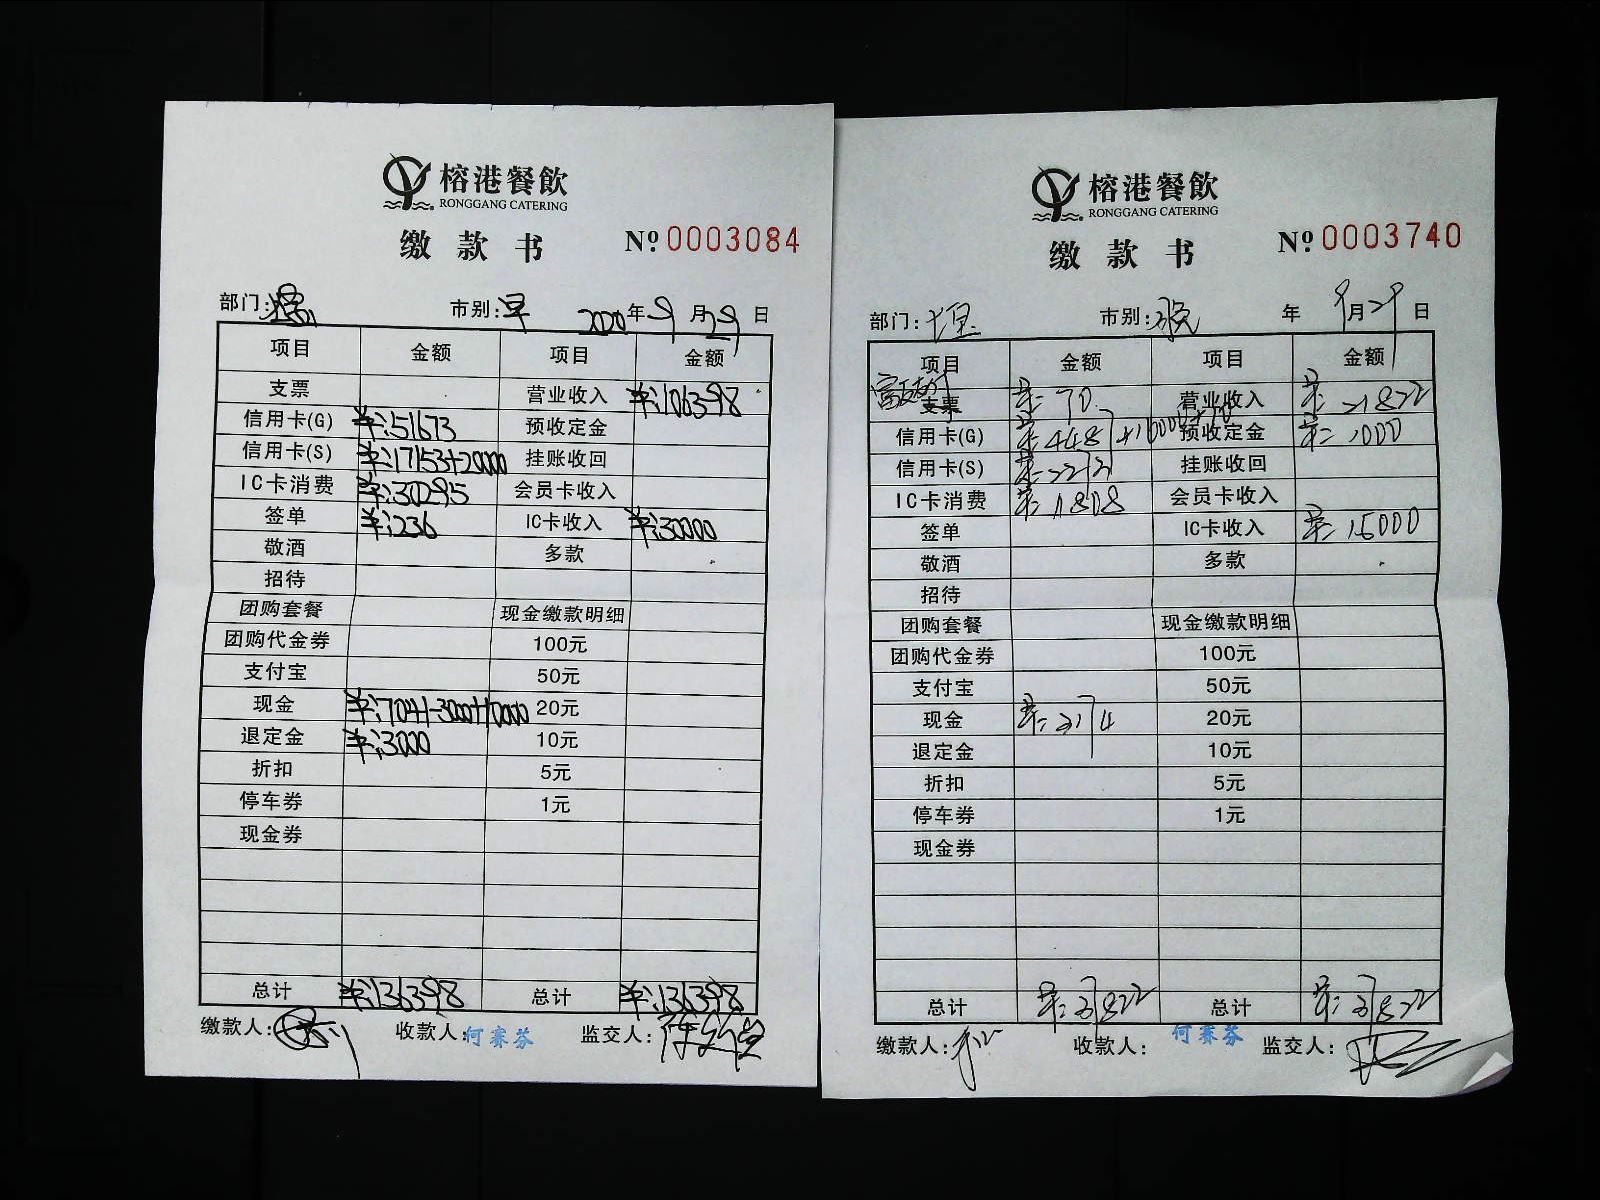 榕港餐飲
RONGGANG CATERING
缴款书 Nº 0003084
部门: 市别:早 2020年9月29日
项目 金额 项目 金额
支票 营业收入 ¥:106398
信用卡(G) ¥:51673 预收定金
信用卡(S) ¥:17153+20000 挂账收回
IC卡消费 ¥:30295 会员卡收入
签单 ¥:236 IC卡收入 ¥:30000
敬酒 多款
招待
团购套餐 现金缴款明细
团购代金券 100元
支付宝 50元
现金 ¥:7041-3000+10000 20元
退定金 ¥:3000 10元
折扣 5元
停车券 1元
现金券
总计 ¥:136398 总计 ¥:136398
缴款人: 收款人:何赛芬 监交人:
榕港餐飲
RONGGANG CATERING
缴款书 Nº 0003740
部门: 市别:晚 年9月29日
项目 金额 项目 金额
富友支付
支票 ¥:70 营业收入 ¥:21822
信用卡(G) ¥:4487+16000+70 预收定金 ¥:1000
信用卡(S) ¥:2213 挂账收回
IC卡消费 ¥:11808 会员卡收入
签单 IC卡收入 ¥:15000
敬酒 多款
招待
团购套餐 现金缴款明细
团购代金券 100元
支付宝 50元
现金 ¥:3174 20元
退定金 10元
折扣 5元
停车券 1元
现金券
总计 ¥:37822 总计 ¥:37822
缴款人: 收款人: 何赛芬 监交人: